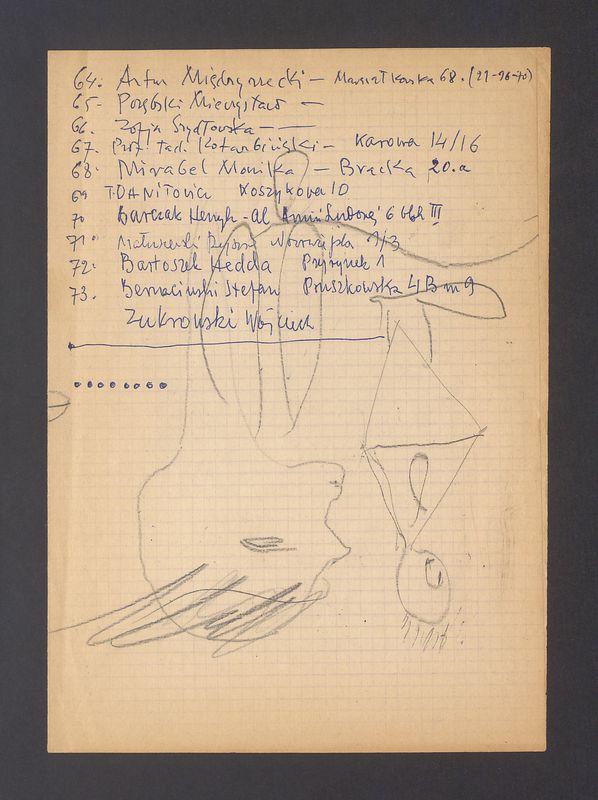 64. Artur Międzyrzecki – Marszałkowska 68. (21-96-70)
65- Porębski Mieczysław –
66. Zofja Szydłowska – —
67. Prof. Tad. Kotarbiński – Karowa 14/16
68. Mirabel Monika – Bracka 20.a
69 Koszykowa 10
70 Barczak Henryk - al. 6 III
71. 1/3
72. Bartoszek Hedda Przyrynek 1
73. Bernaciński Stefan Pruszkowska 4B m 9
Żukrowski Wojciech